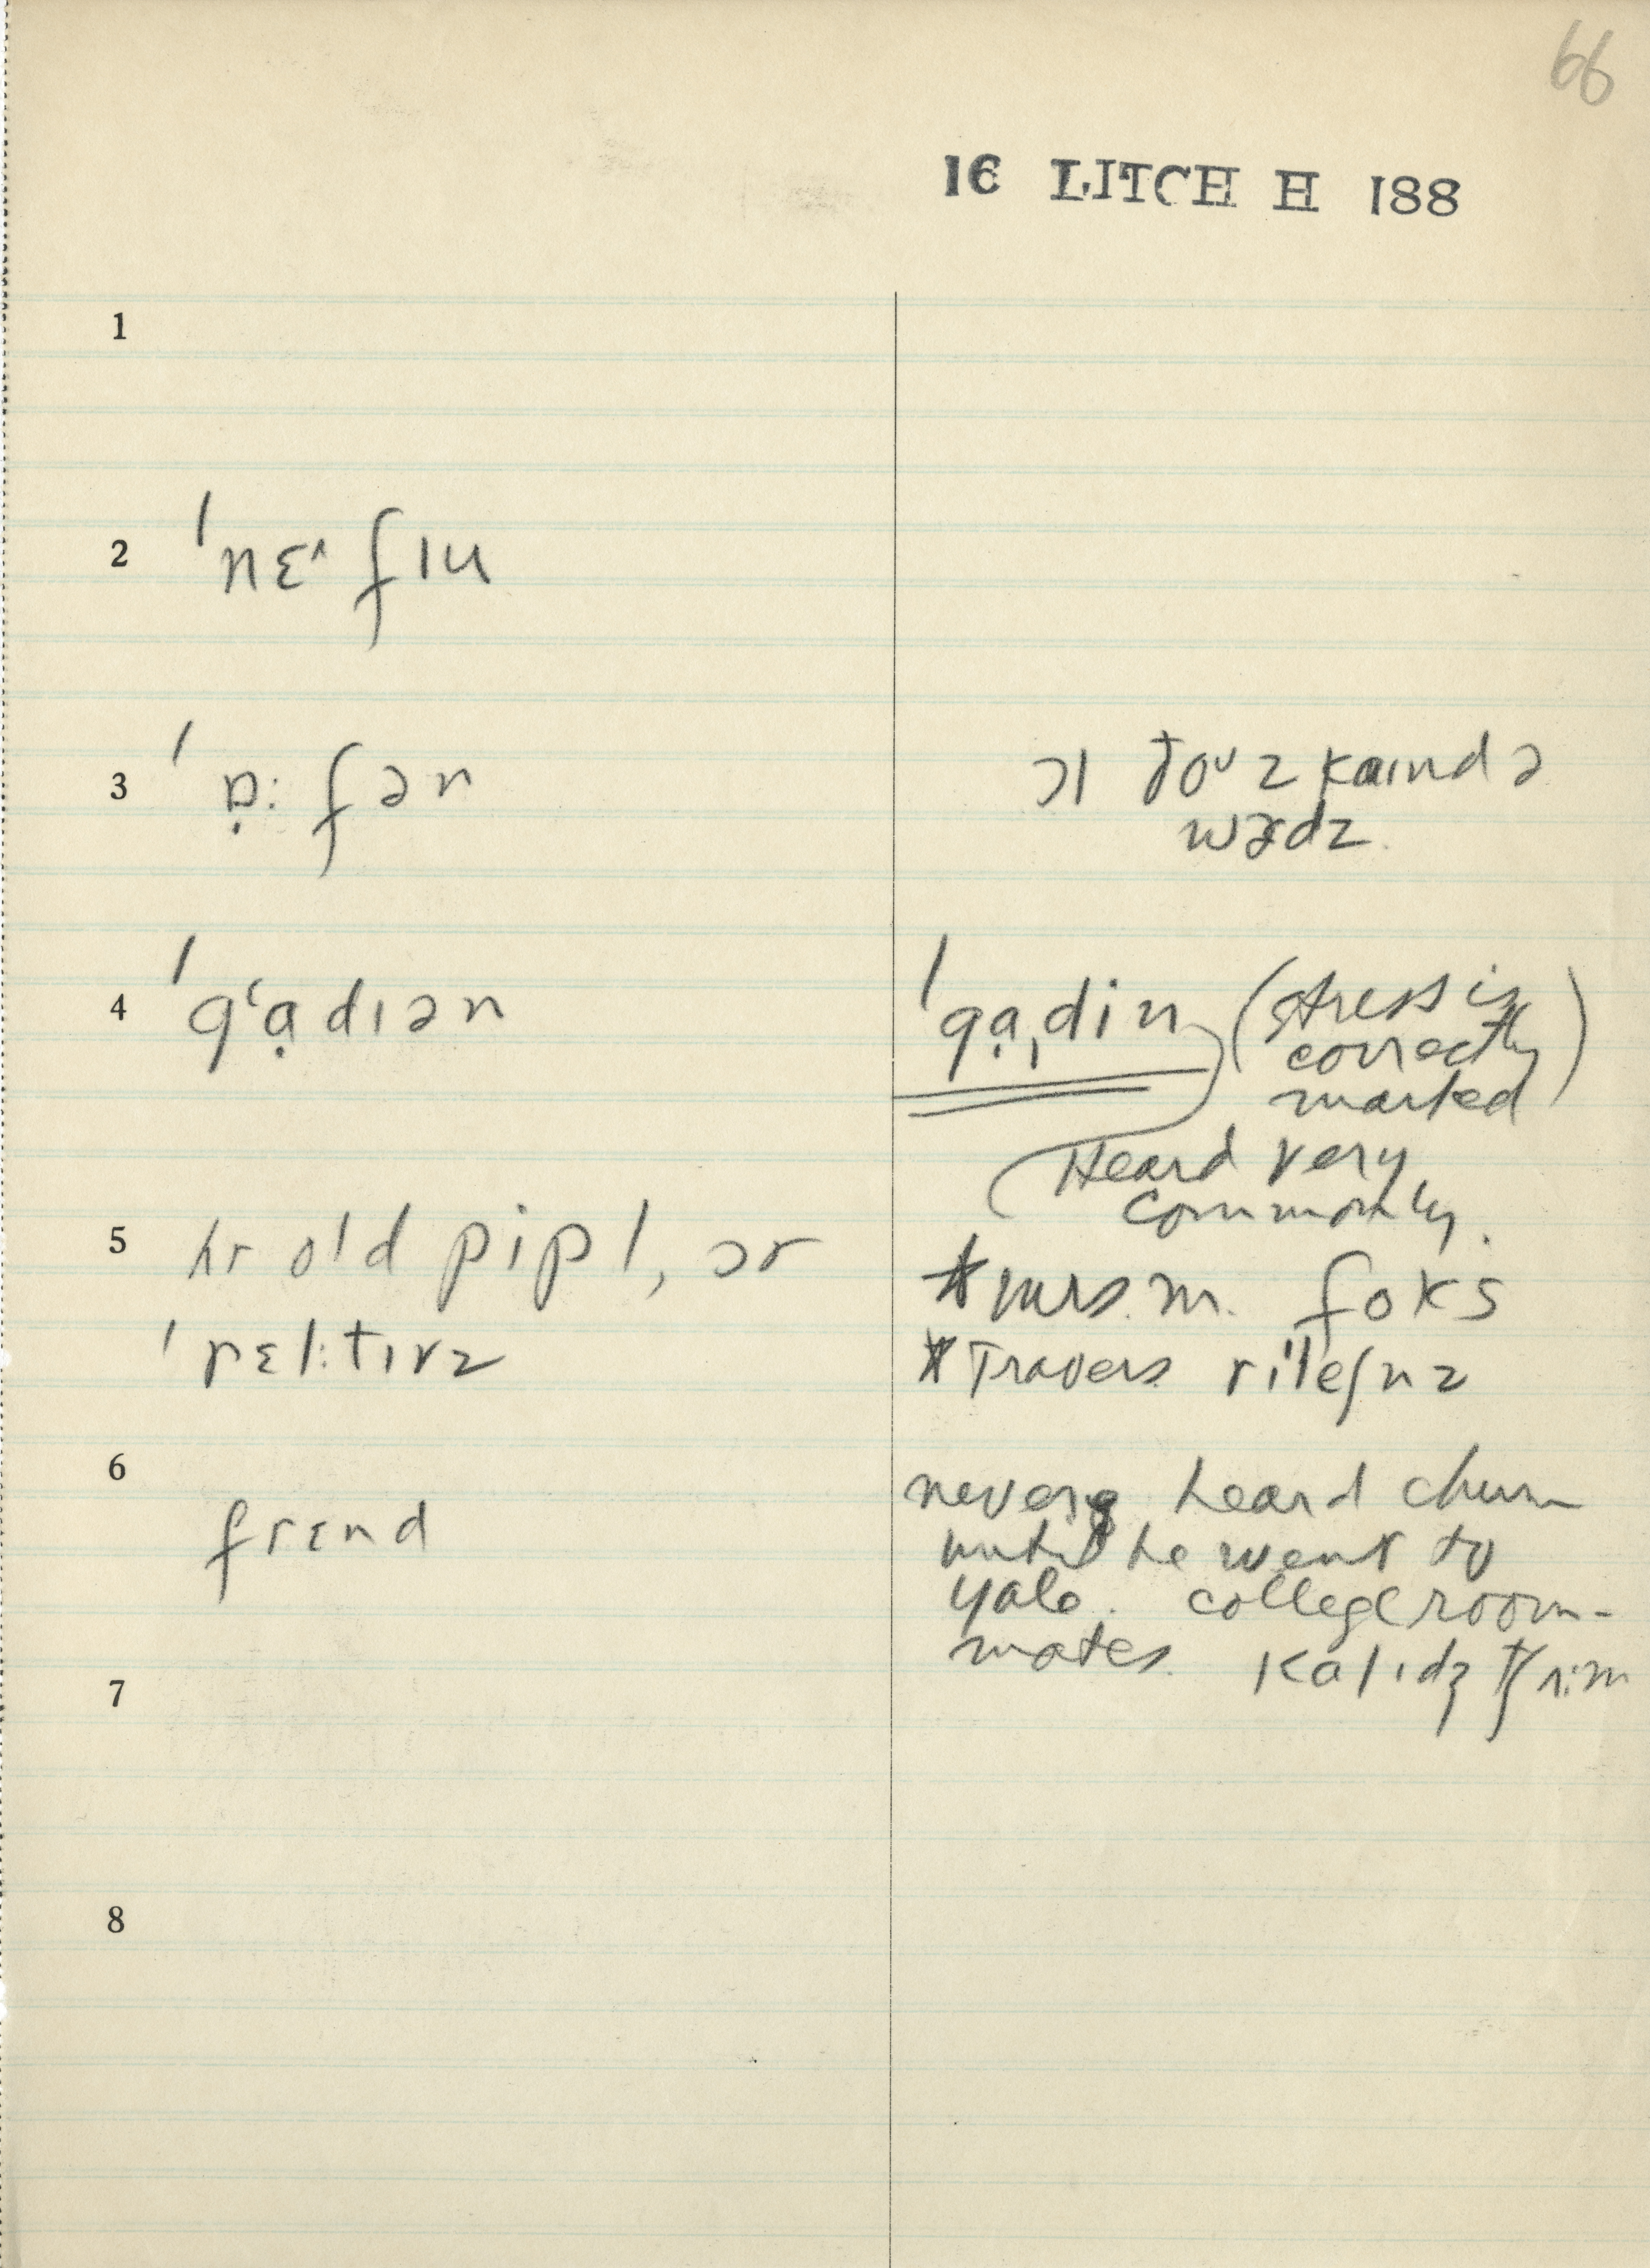 66
16 LITCH H 188
1
2 ˈnɛ˄ fɪu
3 ˈɒ̣: fən
ɔl ðo˅z kaɪnd ə
wɚdz.
4 ˈgʻɑ̣dɪən
ˈgɑ̣ˌdin (stress is
correctly
marked)
Heard very
commonly.
5 hɪ old pipl, ɔr
ˈrɛl:tɪvz
* Mrs. M. foks
* Travers riˈleʃnz
6 frɛnd
never heard chum
until he went to
Yale. college room-
mates. kalɪdʒ
7
8